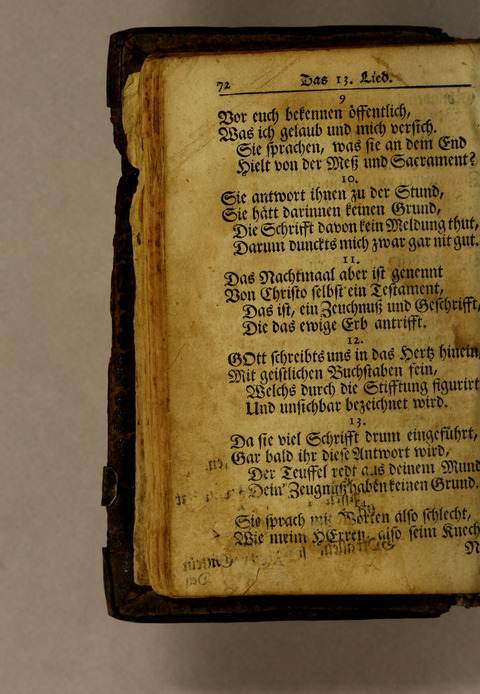 72 Das 13. Lied.
9
Vor euch bekennen öffentlich,
Was ich gelaub und mich versich.
Sie sprachen, was sie an dem End
Hielt von der Meß und Sacrament?
10.
Sie antwort ihnen zu der Stund,
Sie hätt darinnen keinen Grund,
Die Schrifft davon kein Meldung thut,
Darum dunckts mich zwar gar nit gut.
11.
Das Nachtmaal aber ist genennt
Von Christo selbst ein Testament,
Das ist, ein Zeuchnuß und Geschrifft,
Die das ewige Erb antrifft.
12.
GOtt schreibts uns in das Hertz hinein,
Mit geistlichen Buchstaben fein,
Welchs durch die Stifftung figurirt
Und unsichbar bezeichnet wird.
13.
Da sie viel Schrifft drum eingeführt,
Gar bald ihr diese Antwort wird,
Der Teuffel redt aus deinem Mund
Dein Zeugnuß haben keinen Grund.
Sie sprach mit Worten also schlecht,
Wie meim HErren, also seim Knech